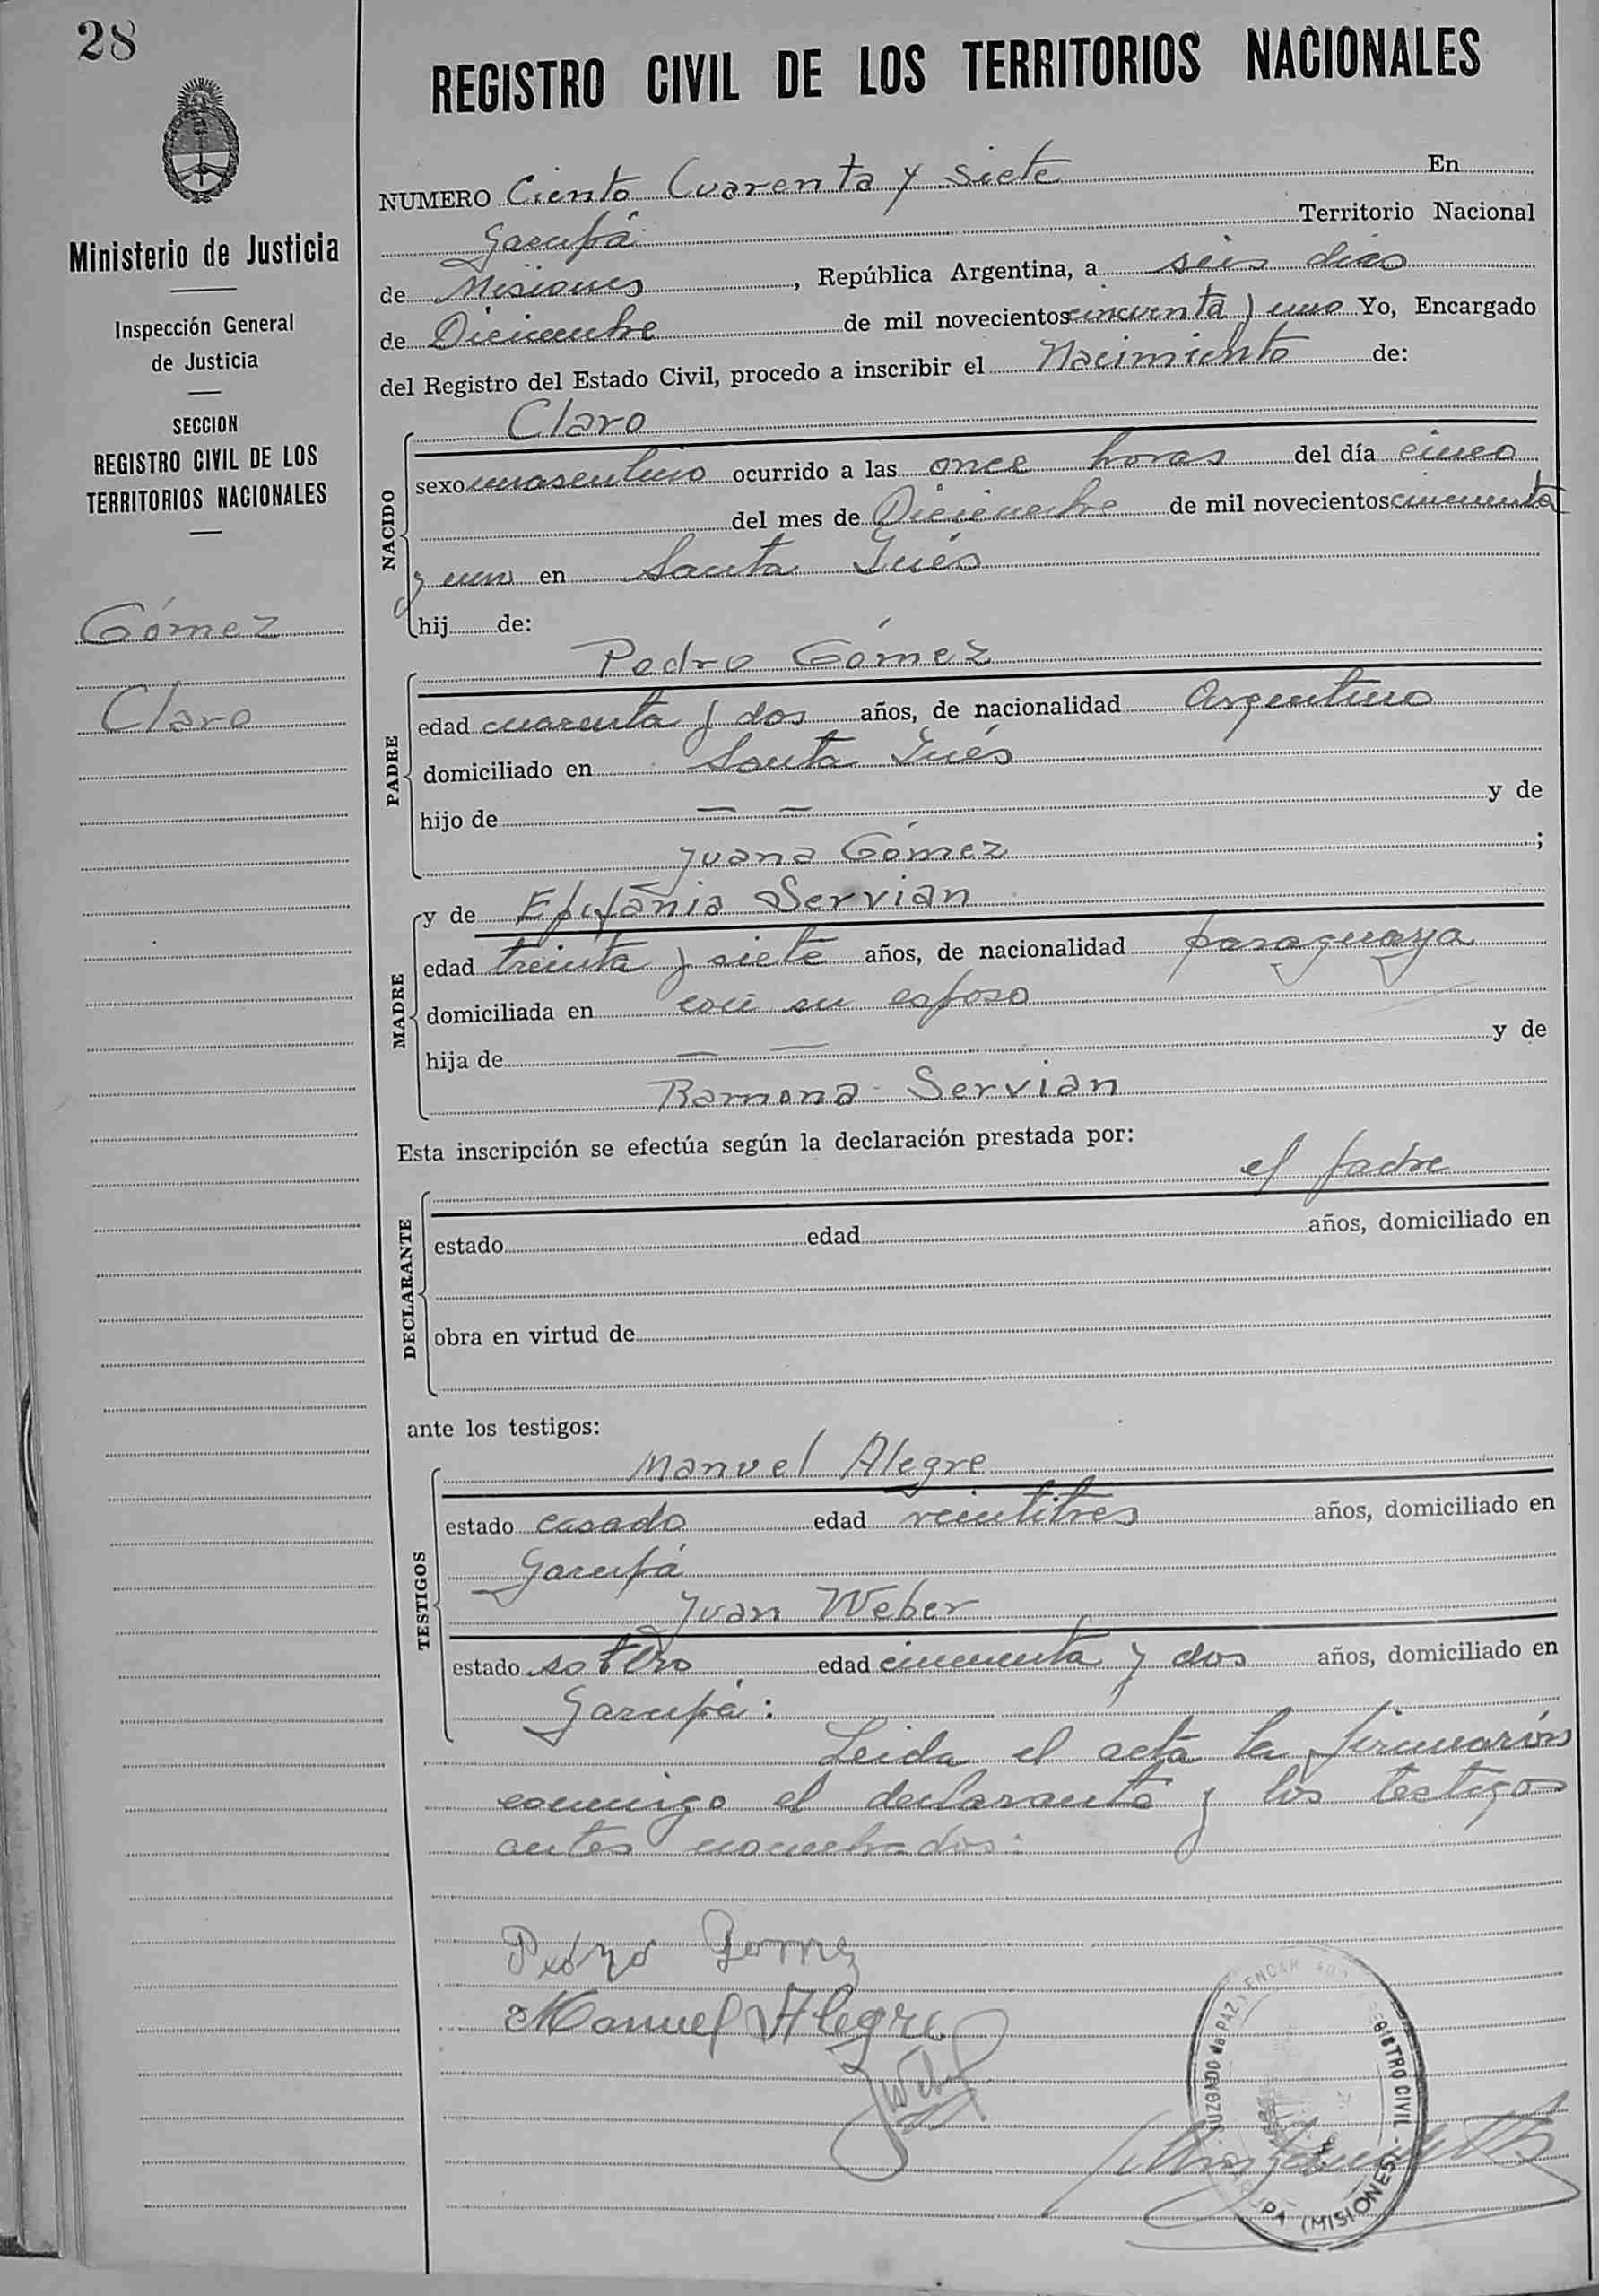 28
REGISTRO CIVIL DE LOS TERRITORIOS NACIONALES
Ministerio de Justicia
Inspección General
de Justicia
SECCION
REGISTRO CIVIL DE LOS
TERRITORIOS NACIONALES
Gómez
Claro
NUMERO Ciento Cuarenta y siete En
Garupá Territorio Nacional
de Misiones, República Argentina, a seis dias
de Diciembre de mil novecientos cincuenta y uno Yo, Encargado
del Registro del Estado Civil, procedo a inscribir el Nacimiento de:
NACIDO
Claro
sexo masculino ocurrido a las once horas del día cinco
del mes de Diciembre de mil novecientos cincuenta
y uno en Santa Inés
hij de:
PADRE
Pedro Gómez
edad cuarenta y dos años, de nacionalidad Argentino
domiciliado en Santa Inés
hijo de — — y de
Juana Gómez ;
MADRE
y de Epifánia Servian
edad treinta y siete años, de nacionalidad paraguaya
domiciliada en con su esposo
hija de — — y de
Ramona Servian
Esta inscripción se efectúa según la declaración prestada por:
el padre
DECLARANTE
estado edad años, domiciliado en
obra en virtud de
ante los testigos:
TESTIGOS
Manuel Alegre
estado casado edad veintitres años, domiciliado en
Garupá
Juan Weber
estado soltero edad cincuenta y dos años, domiciliado en
Garupá:
Leida el acta la firmaron
conmigo el declarante y los testigos
antes nombrados:
Pedro Gomez
Manuel Alegre
JWeber
JUZGADO de PAZ y ENCAR REGISTRO CIVIL - (MISIONES)